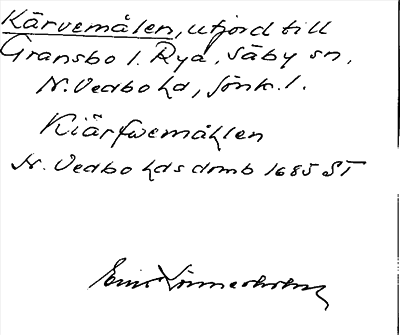 Kärvemålen, utjord till
Gransbo l. Rya, Säby sn,
N. Vedbo hd, Jönk. l.
Kiärfwemåhlen
N. Vedbo hds domb 1685 ST